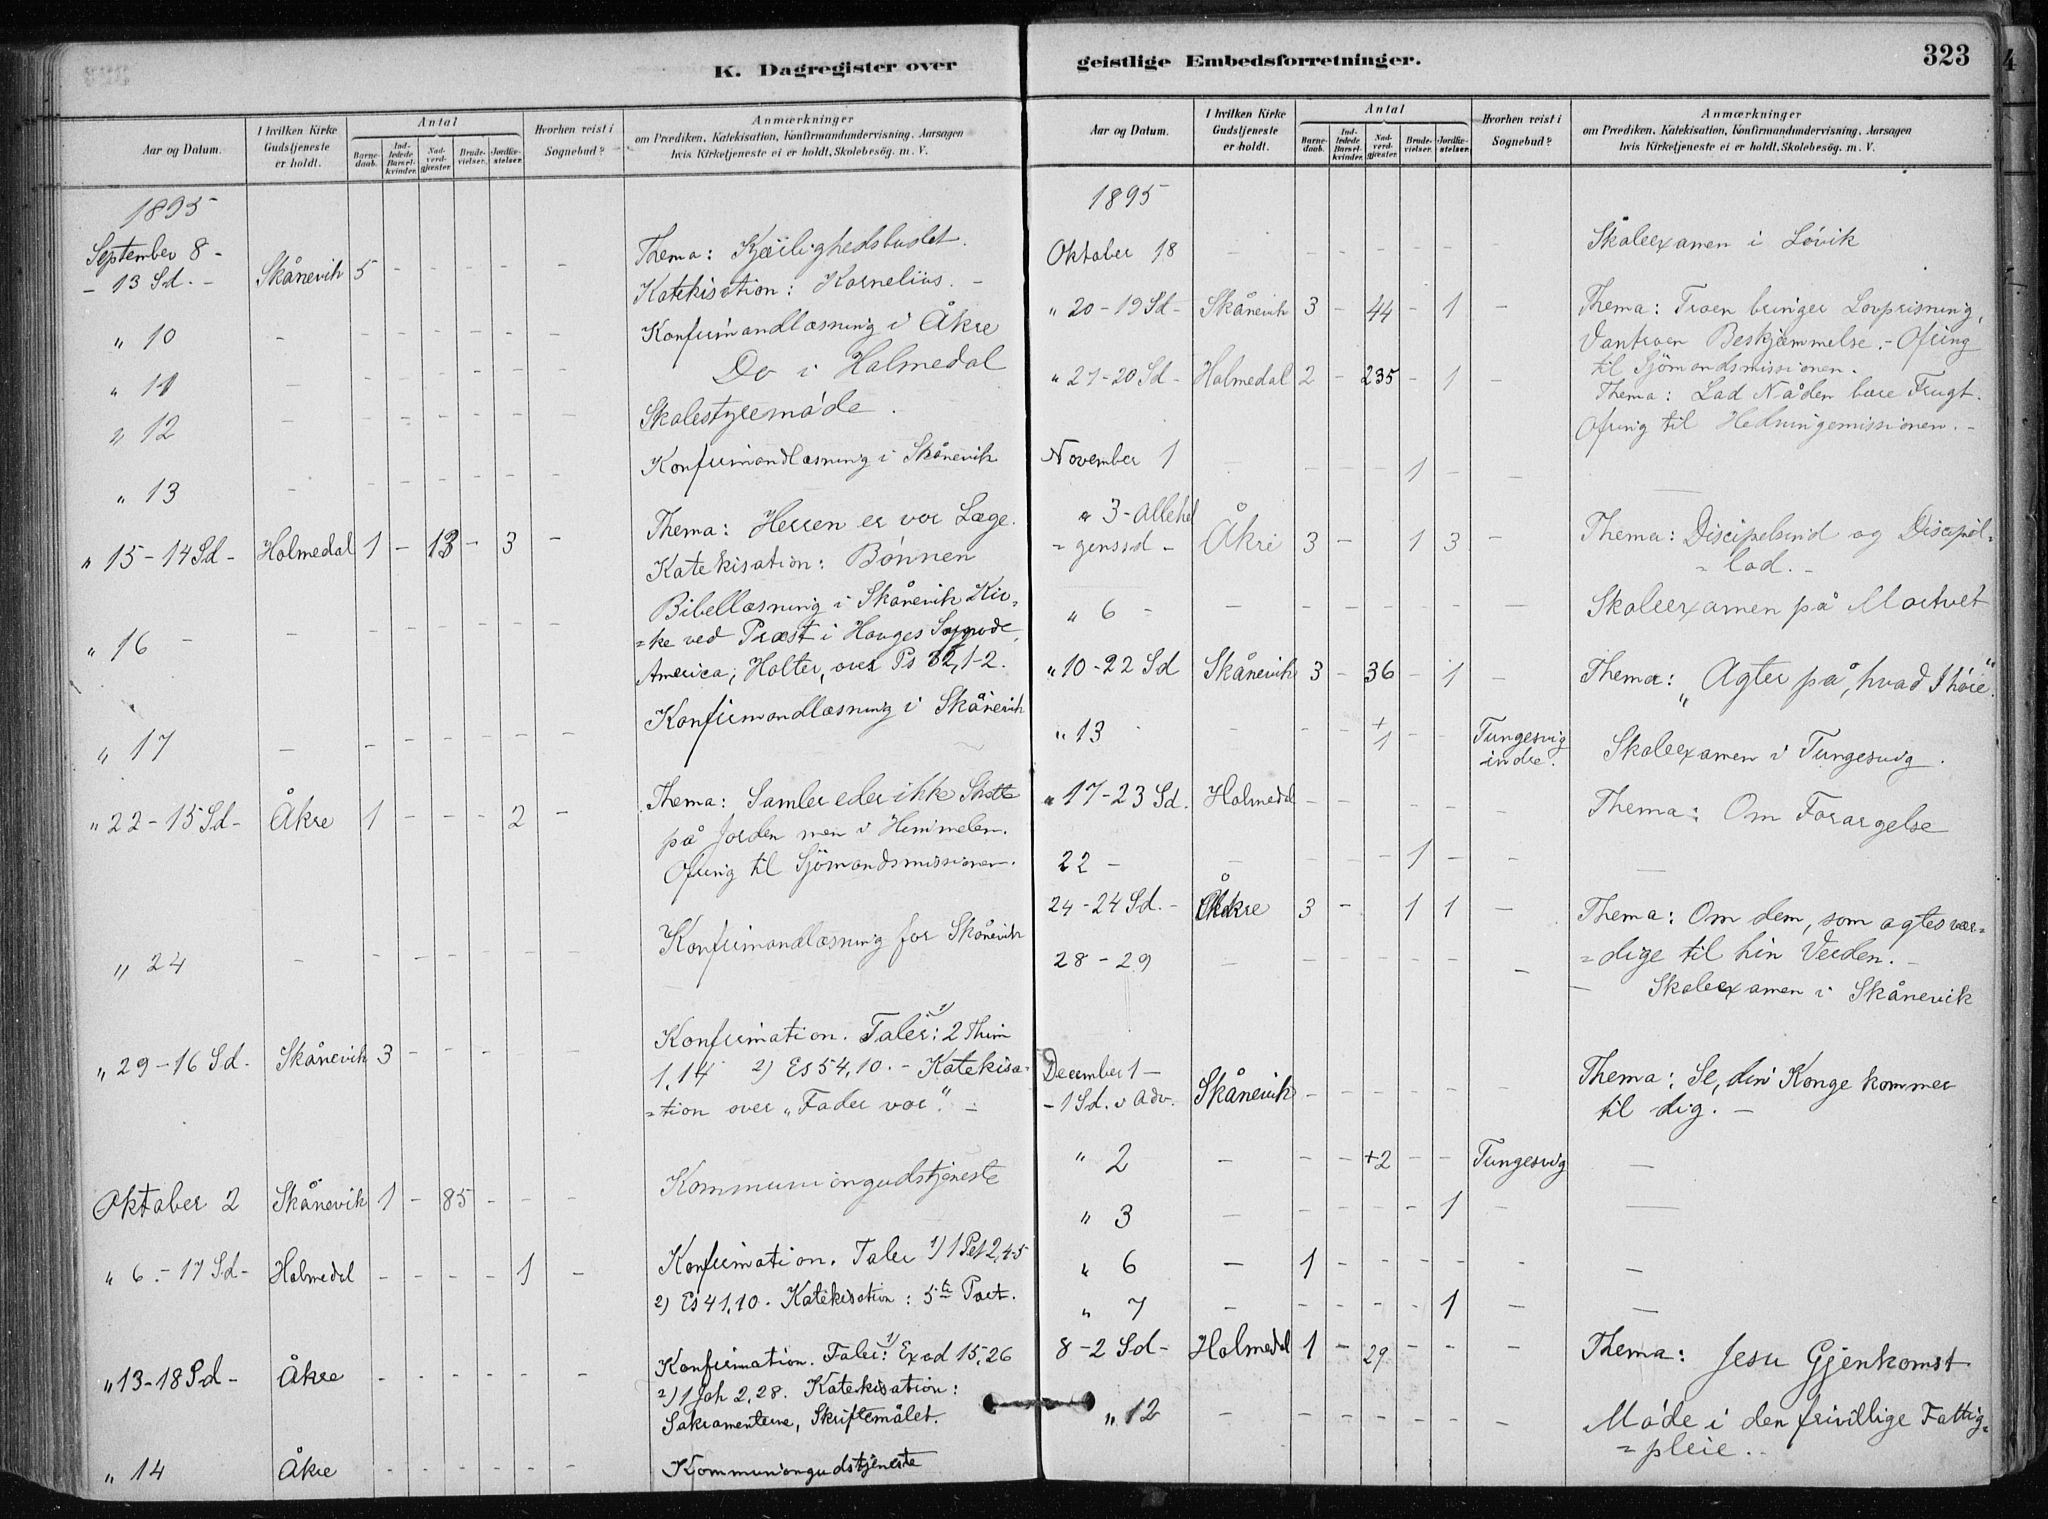 K. Dagregister over
Aar og Datum.
I hvilken Kirke
Gudstjeneste
er holdt.
Antal
Barne-
daab.
Ind-
ledede
Barsel-
kvinder.
Nad-
verd-
gjæster.
Brude-
vielser.
Jordfæ-
stelser.
Hvorhen reist i
Sognebud?
Anmærkninger
om Prædiken, Katekisation, Konfirmandundervisning, Aarsagen
hvis Kirketjeneste ei er holdt, Skolebesøg. m. V.
1895
September 8 -
- 13 Sd. - Skånevik 5 - - - - - Thema: Kjærlighedsbuslet.
Katekisation: Kornelius. -
" 10 - - - - - - - Konfirmandlæsning i Åkre
" 11 - - - - - - - Do i Holmedal
" 12 - - - - - - - Skolestyremøde.
" 13 - - - - - - - Konfirmandlæsning i Skånevik
" 15 - 14 Sd - Holmedal 1 - 13 - 3 - Thema: Herren er vor Læge.
Katekisation: Bønnen
" 16 - - - - - - - - Bibellæsning i Skånevik Kir-
=ke ved Præst i Hauges Synode,
America, Holter, over Ps 32, 1-2.
" 17 - - - - - - - Konfirmandlæsning i Skånevik
" 22 - 15 Sd - Åkre 1 - - - 2 - Thema: Samler eder ikke Skatte
på Jorden men i Himmelen.
Ofring til Sjömandsmissionen.
" 24 - - - - - - - Konfirmandlæsning for Skånevik
" 29 - 16 Sd. Skånevik 3 - - - - - Konfirmation. Taler: 1) 2 Thim
1,14 2) Es 54,10. - Katekisa-
=tion over "Fader vor". -
Oktober 2 Skånevik 1 - 85 - - - Kommuniongudstjeneste
" 6. - 17 Sd - Holmedal - - - - 1 - Konfirmation. Taler 1) 1 Pet 2,4-5
2) Es 41,10. Katekisation: 5te Part.
" 13 - 18 Sd - Åkre - - - - - - Konfirmation. Taler: 1) Exod 15,26
2) 1 Joh 2,28. Katekisation:
Sakramenterne, Skriftemålet.
" 14 Åkre - - - - - - Kommuniongudstjeneste
geistlige Embedsforretninger.
323
Aar og Datum.
I hvilken Kirke
Gudstjeneste
er holdt.
Antal
Barne-
daab.
Ind-
ledede
Barsel-
kvinder.
Nad-
verd-
gjæster.
Brude-
vielser.
Jordfæ-
stelser.
Hvorhen reist i
Sognebud?
Anmærkninger
om Prædiken, Katekisation, Konfirmandundervisning, Aarsagen
hvis Kirketjeneste ei er holdt, Skolebesøg. m. V.
1895
Oktober 18 - - - - - - Skoleexamen i Løvik
" 20 - 19 Sd - Skånevik 3 - 44 - 1 - Thema: Troen bringer Lovprisning,
Vantroen Beskjæmmelse. - Ofring
til Sjömandsmissionen.
" 27 - 20 Sd - Holmedal 2 - 235 - 1 - Thema: Lad Nåden bære Frugt.
Ofring til Hedningemissionen. -
November 1 - - - - 1 - -
" 3 - Allehel
=genssd - Åkre 3 - 1 3 - Thema: Discipelsind og Discipel-
=lod. -
" 6 - - - - - - - - Skoleexamen på Mortvet
" 10 - 22 Sd Skånevik 3 - 36 - 1 - Thema: "Agter på, hvad I høre".
" 13 - - - - + 1 - - Tungesvig
indre. Skoleexamen i Tungesvig.
" 17 - 23 Sd. Holmedal - - - - - - Thema: Om Forargelse
22 - - - - - 1 - - -
24 - 24 Sd. - Åkre 3 - 1 1 - Thema: Om dem, som agtes vær-
=dige til hin Verden. -
28 - 29 - - - - - - - - Skoleexamen i Skånevik
December 1 -
- 1 Sd. i Adv. Skånevik - - - - - - Thema: Se, din Konge kommer
til dig. -
" 2 - - - +2 - - Tungesvig -
" 3 - - - - - 1 - -
" 6 - 1 - - - - - -
" 7 - - - - - 1 - -
8 - 2 Sd - Holmedal 1 - 29 - - - Thema: Jesu Gjenkomst
" 12 - - - - - - - Møde i den frivillige Fattig-
=pleie.